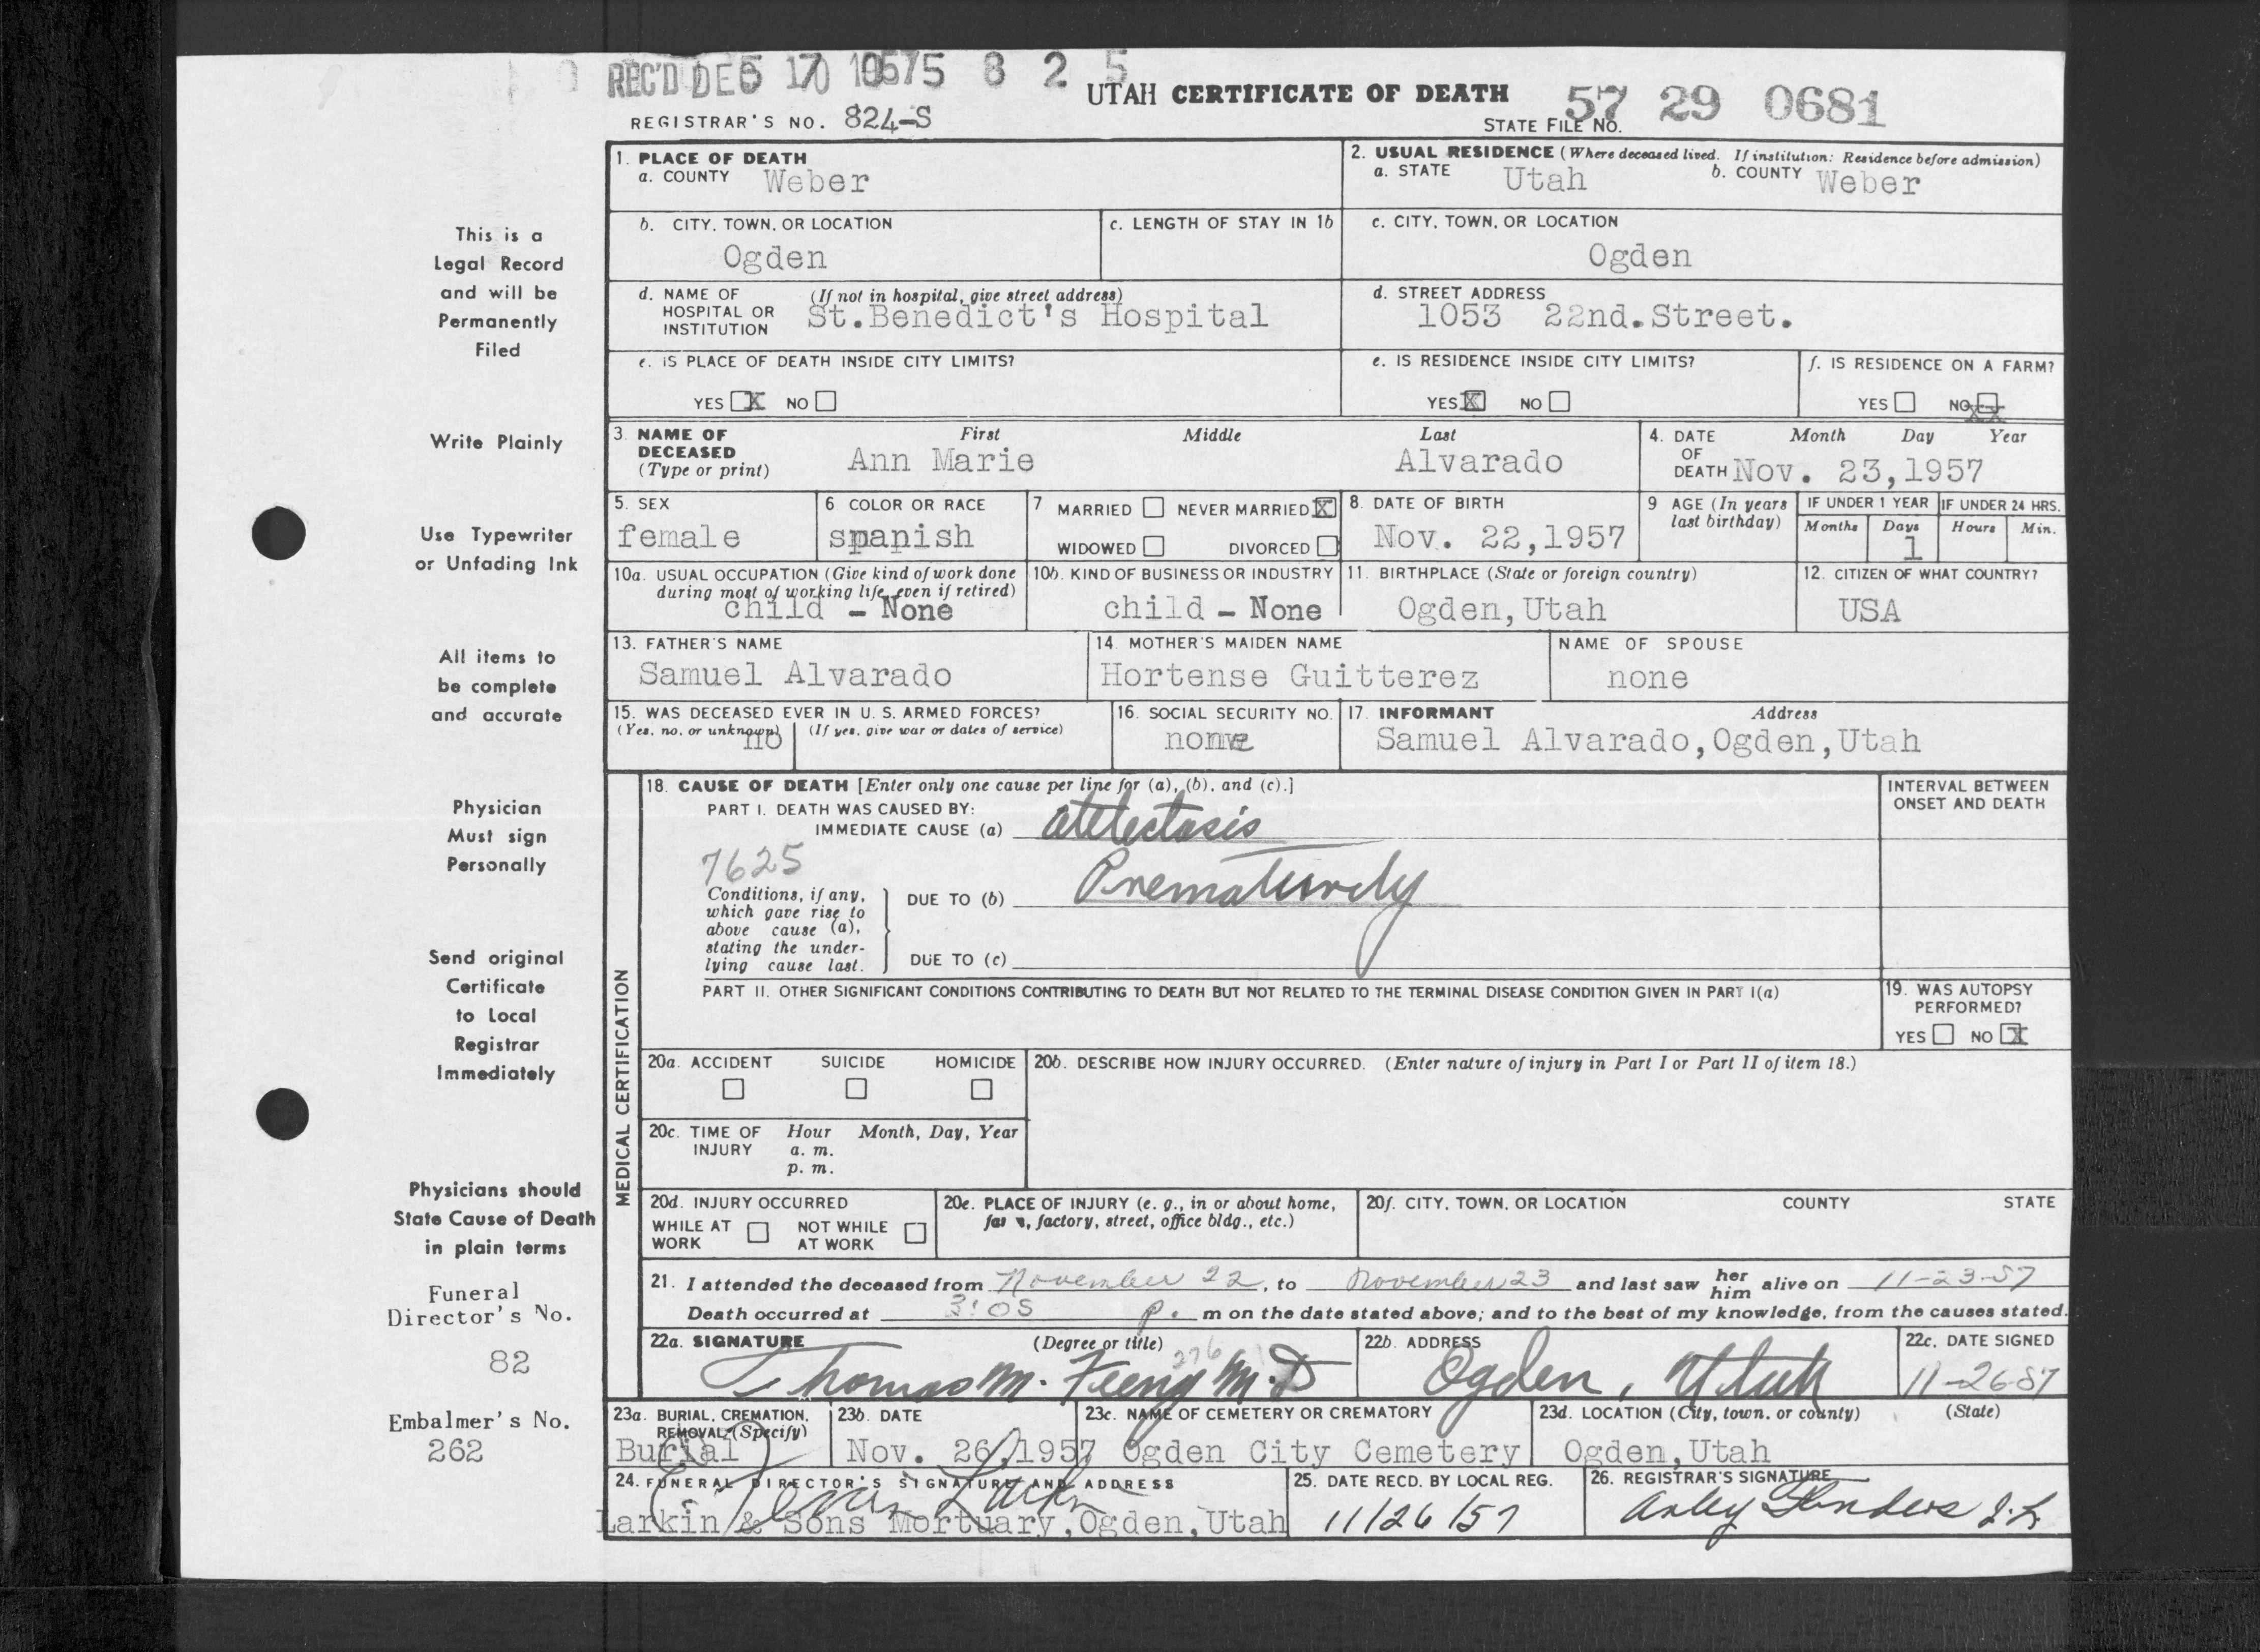 REC'D DEC 17 1957 5 8 2 5
UTAH CERTIFICATE OF DEATH
57 29 0681
REGISTRAR'S NO. 824-S
STATE FILE NO.
1. PLACE OF DEATH
a. COUNTY Weber
2. USUAL RESIDENCE (Where deceased lived. If institution: Residence before admission)
a. STATE Utah b. COUNTY Weber
b. CITY, TOWN, OR LOCATION
Ogden
c. LENGTH OF STAY IN 1b
c. CITY, TOWN, OR LOCATION
Ogden
d. NAME OF HOSPITAL OR INSTITUTION (If not in hospital, give street address)
St.Benedict's Hospital
d. STREET ADDRESS
1053 22nd.Street.
e. IS PLACE OF DEATH INSIDE CITY LIMITS?
YES X NO
e. IS RESIDENCE INSIDE CITY LIMITS?
YES X NO
f. IS RESIDENCE ON A FARM?
YES NO XX
3. NAME OF DECEASED (Type or print)
First Middle Last
Ann Marie Alvarado
4. DATE OF DEATH Month Day Year
Nov. 23,1957
5. SEX
female
6 COLOR OR RACE
spanish
7 MARRIED NEVER MARRIED X
WIDOWED DIVORCED
8. DATE OF BIRTH
Nov. 22,1957
9 AGE (In years last birthday)
IF UNDER 1 YEAR IF UNDER 24 HRS.
Months Days Hours Min.
1
10a. USUAL OCCUPATION (Give kind of work done during most of working life, even if retired)
child - None
10b. KIND OF BUSINESS OR INDUSTRY
child - None
11. BIRTHPLACE (State or foreign country)
Ogden,Utah
12. CITIZEN OF WHAT COUNTRY?
USA
13. FATHER'S NAME
Samuel Alvarado
14. MOTHER'S MAIDEN NAME
Hortense Guitterez
NAME OF SPOUSE
none
15. WAS DECEASED EVER IN U. S. ARMED FORCES?
(Yes, no, or unknown) (If yes, give war or dates of service)
no
16. SOCIAL SECURITY NO.
none
17. INFORMANT Address
Samuel Alvarado,Ogden,Utah
MEDICAL CERTIFICATION
18. CAUSE OF DEATH [Enter only one cause per line for (a), (b), and (c).]
PART I. DEATH WAS CAUSED BY:
IMMEDIATE CAUSE (a) atelectasis
INTERVAL BETWEEN ONSET AND DEATH
7625
Conditions, if any, which gave rise to above cause (a), stating the underlying cause last.
DUE TO (b) Prematurely
DUE TO (c)
PART II. OTHER SIGNIFICANT CONDITIONS CONTRIBUTING TO DEATH BUT NOT RELATED TO THE TERMINAL DISEASE CONDITION GIVEN IN PART I(a)
19. WAS AUTOPSY PERFORMED?
YES NO X
20a. ACCIDENT SUICIDE HOMICIDE
20b. DESCRIBE HOW INJURY OCCURRED. (Enter nature of injury in Part I or Part II of item 18.)
20c. TIME OF INJURY Hour Month, Day, Year
a. m.
p. m.
20d. INJURY OCCURRED
WHILE AT WORK NOT WHILE AT WORK
20e. PLACE OF INJURY (e. g., in or about home, farm, factory, street, office bldg., etc.)
20f. CITY, TOWN, OR LOCATION COUNTY STATE
21. I attended the deceased from November 22, to November 23 and last saw her him alive on 11-23-57
Death occurred at 3:05 p. m on the date stated above; and to the best of my knowledge, from the causes stated.
22a. SIGNATURE (Degree or title)
276
Thomas M. Feeny M.D
22b. ADDRESS
Ogden, Utah
22c. DATE SIGNED
11-26-57
23a. BURIAL, CREMATION, REMOVAL (Specify)
Burial
23b. DATE
Nov. 26,1957
23c. NAME OF CEMETERY OR CREMATORY
Ogden City Cemetery
23d. LOCATION (City, town, or county) (State)
Ogden,Utah
24. FUNERAL DIRECTOR'S SIGNATURE AND ADDRESS
Larkin
Larkin & Sons Mortuary,Ogden,Utah
25. DATE RECD. BY LOCAL REG.
11/26/57
26. REGISTRAR'S SIGNATURE
This is a
Legal Record
and will be
Permanently
Filed
Write Plainly
Use Typewriter
or Unfading Ink
All items to
be complete
and accurate
Physician
Must sign
Personally
Send original
Certificate
to Local
Registrar
Immediately
Physicians should
State Cause of Death
in plain terms
Funeral
Director's No.
82
Embalmer's No.
262